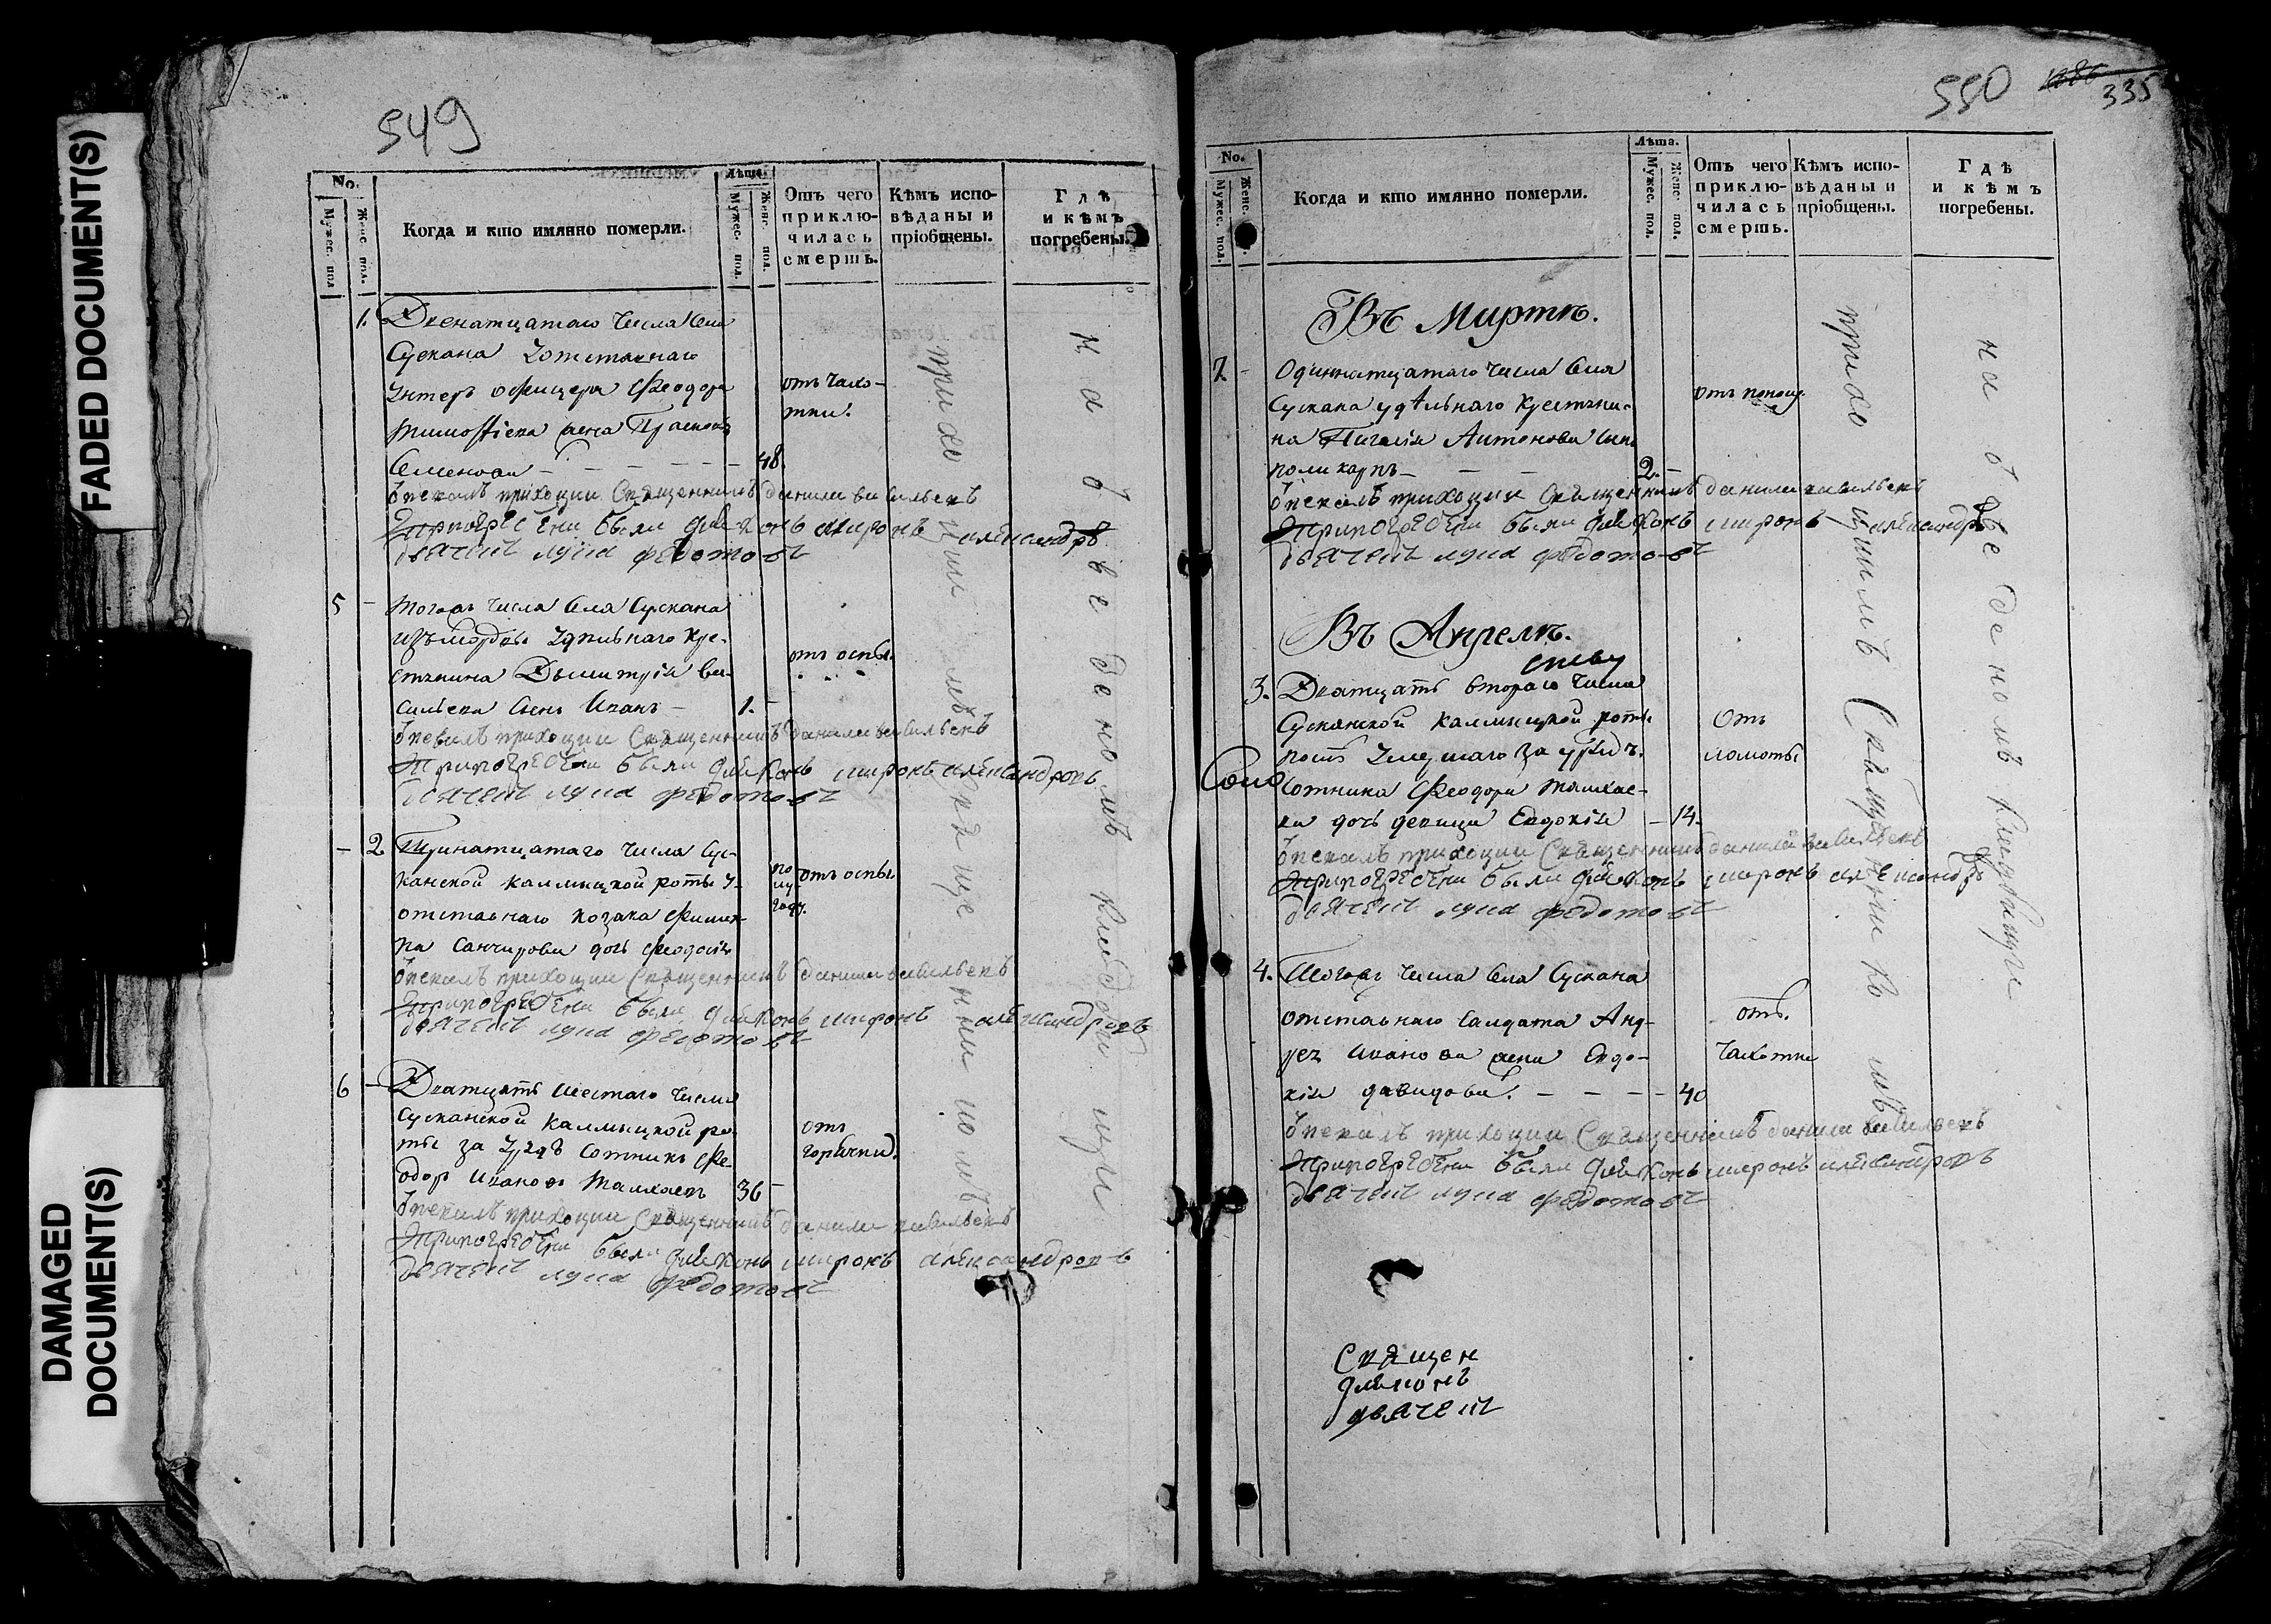 FADED DOCUMENT(S)
DAMAGED
DOCUMENT(S)
549
No.
Мужес. пол
Женс. пол.
Когда и кто имянно померли.
Лѣта.
Мужес. пол.
Женс. пол.
Отъ чего
приклю-
чилась
смерть.
Кѣмъ испо-
вѣданы и
пріобщены.
Гдѣ
и кѣмъ
погребены.
1. Двенатцатаго числа села
Сускана Уотставнаго
Унтеръ офицера Феодора
Тимофѣева жена Прасковья
Семенова — 48.
отъ чахо-
тки.
Отпевалъ приходции Священникъ данила васильевъ
Припогребени были дияконъ миронъ александръ
дьячекъ лука федотовъ
5 - Тогожъ числа села Сускана
измордвы Удельнаго кре-
стьянина Дьмитрія ва-
сильева сынъ Иванъ — 1. -
отъ оспы.
Отпевалъ приходции Священникъ данила васильевъ
Припогребени были дияконъ миронъ александровъ
дьячекъ лука федотовъ
- 2 Тринатцатаго числа Сус-
канской калмыцкой роты У-
отставнаго козака Филип-
па Санчирова дочь Феодосья
по
лу
году.
отъ оспы.
Отпевалъ приходции Священникъ данила васильевъ
Припогребени были дияконъ миронъ александровъ
дьячекъ лука федотовъ
6 - Дватцать шестаго числа
Сусканской калмыцкой ро-
ты за Урядъ Сотникъ Фе-
одоръ Ивановъ Талхаевъ 36 -
отъ
горячки.
Отпевалъ приходции Священникъ данила васильевъ
Припогребени были дияконъ миронъ александровъ
дьячекъ лука федотовъ
на отведеномъ кладбищи
550
335
No.
Мужес. пол.
Женс.
Когда и кто имянно померли.
Лѣта.
Мужес. пол.
Женс. пол.
Отъ чего
приклю-
чилась
смерть.
Кѣмъ испо-
вѣданы и
пріобщены.
Гдѣ
и кѣмъ
погребены.
Въ Мартѣ.
7. - Одиннатцатаго числа села
Сускана удѣльнаго крестьяни-
на Антонова сынъ
поликарпъ — 2. -
отъ поносу.
Отпевалъ приходции Священникъ данила васильевъ
Припогребени были дияконъ миронъ александръ
дьячекъ лука федотовъ
Въ Апрелѣ.
3. Дватцать втораго числа
Сусканской калмыцкой роты
Умершаго за урядъ
Сотника Феодора Талхае-
ва дочь девица Евдокія — 14.
Отъ
ломоты
Отпевалъ приходции Священникъ данила васильевъ
Припогребени были дияконъ миронъ александръ
дьячекъ лука федотовъ
4. Тогожъ числа села Сускана
отставнаго Салдата Анд-
рея Иванова жена Евдо-
кія давидова. — 40
отъ.
чахотки
Отпевалъ приходции Священникъ данила васильевъ
Припогребени были дияконъ миронъ александровъ
дьячекъ лука федотовъ
приходцкимъ Священникомъ
на отведеномъ кладбищи
Священ
дияконъ
дьячекъ